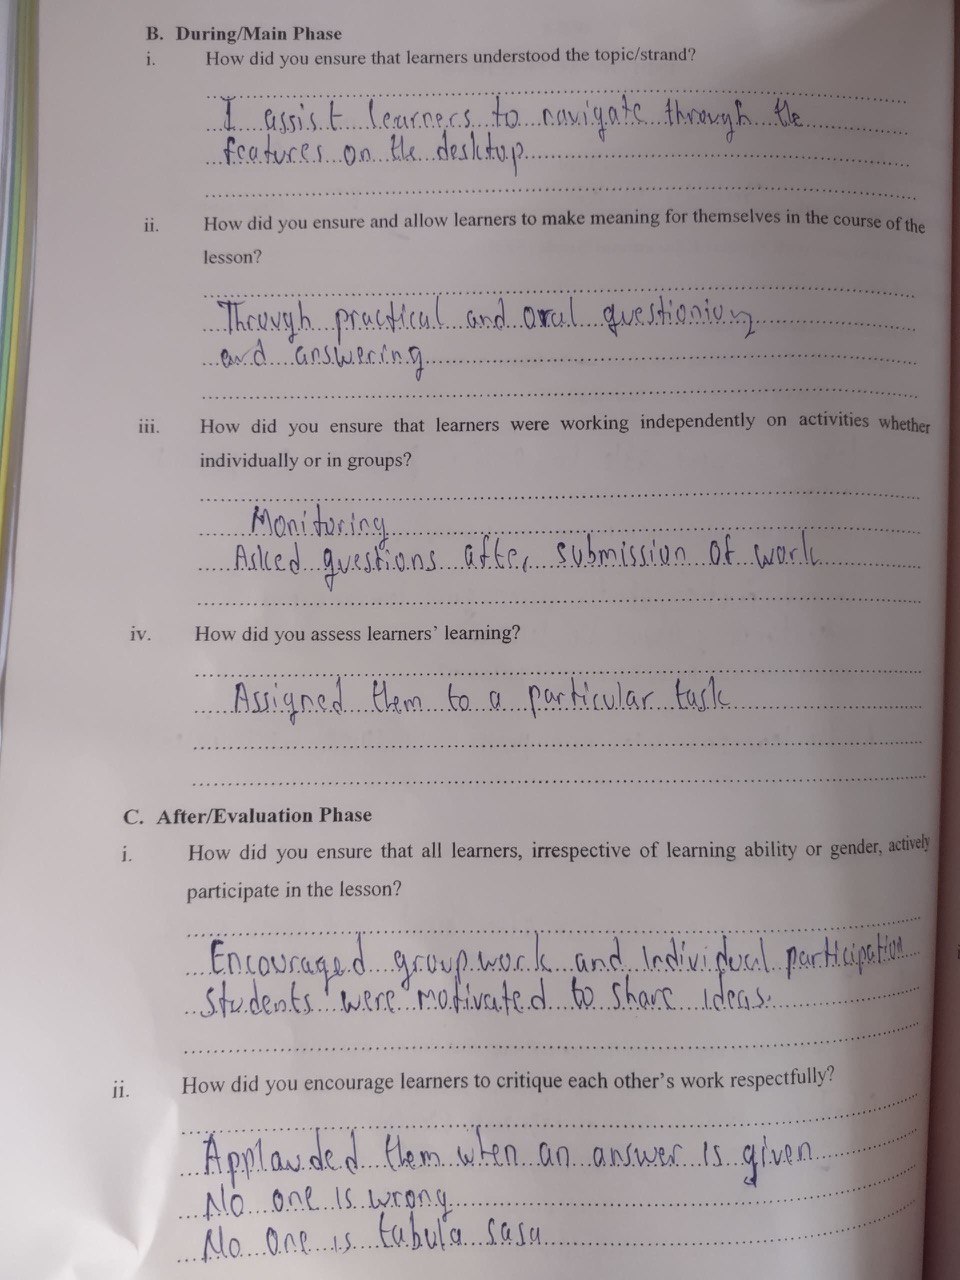 B. During/Main Phase
i. How did you ensure that learners understood the topic/strand?
I assist learners to navigate through the
features on the desktop
ii. How did you ensure and allow learners to make meaning for themselves in the course of the
lesson?
Through practical and oral questioning
and answering
iii. How did you ensure that learners were working independently on activities whether
individually or in groups?
Monitoring
Asked questions after submission of work
iv. How did you assess learners' learning?
Assigned them to a particular task
C. After/Evaluation Phase
i. How did you ensure that all learners, irrespective of learning ability or gender, actively
participate in the lesson?
Encouraged group work and Individual participation
Students were motivated to share ideas.
ii. How did you encourage learners to critique each other's work respectfully?
Applauded them when an answer is given
No one is wrong
No one is tabula sasa